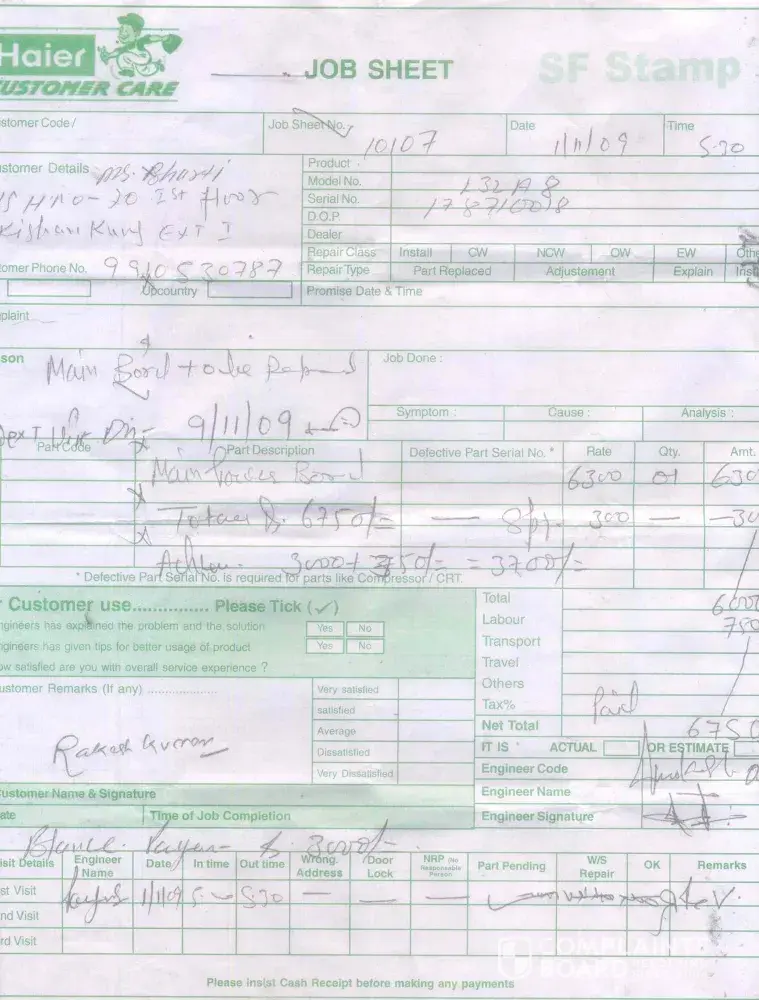 Haier
CUSTOMER CARE
JOB SHEET
SF Stamp
stomer Code /
Job Sheet No.
10107
Date
1/11/09
Time
5.30
stomer Details
Ms. Bharti
H NO-20 Ist floor
Kishan Kunj EXT I
tomer Phone No. 9910530787
Upcountry
Product
Model No. L32A8
Serial No.
D.O.P
Dealer
Repair Class Install CW NCW OW EW Othe
Repair Type Part Replaced Adjustement Explain Inst
Promise Date & Time
plaint
son
Main Bord to be
Job Done :
9/11/09
Symptom : Cause : Analysis :
Part Code Part Description Defective Part Serial No. * Rate Qty. Amt.
Main Bord 6300 01 630
Total Rs. 6750/= — 300 — —30
3000 + 750/= = 3700/=
* Defective Part Serial No. is required for parts like Compressor / CRT.
r Customer use............... Please Tick (✓)
ngineers has explained the problem and the solution Yes No
ngineers has given tips for better usage of product Yes No
ow satisfied are you with overall service experience ?
ustomer Remarks (If any) ..................
Very satisfied
satisfied
Average
Dissatisfied
Very Dissatisfied
Rakesh Kumar
ustomer Name & Signature
ate
Time of Job Completion
Total 6000
Labour 750
Transport
Travel
Others
Tax% Paid
Net Total 6750
IT IS ACTUAL OR ESTIMATE
Engineer Code
Engineer Name
Engineer Signature
3000/-
isit Details Engineer Name Date In time Out time Wrong Address Door Lock NRP (No Responsible Person Part Pending W/S Repair OK Remarks
st Visit 1/11/09 5.30 — — —
nd Visit
rd Visit
COMPLAINTS
BOARD
Please insist Cash Receipt before making any payments